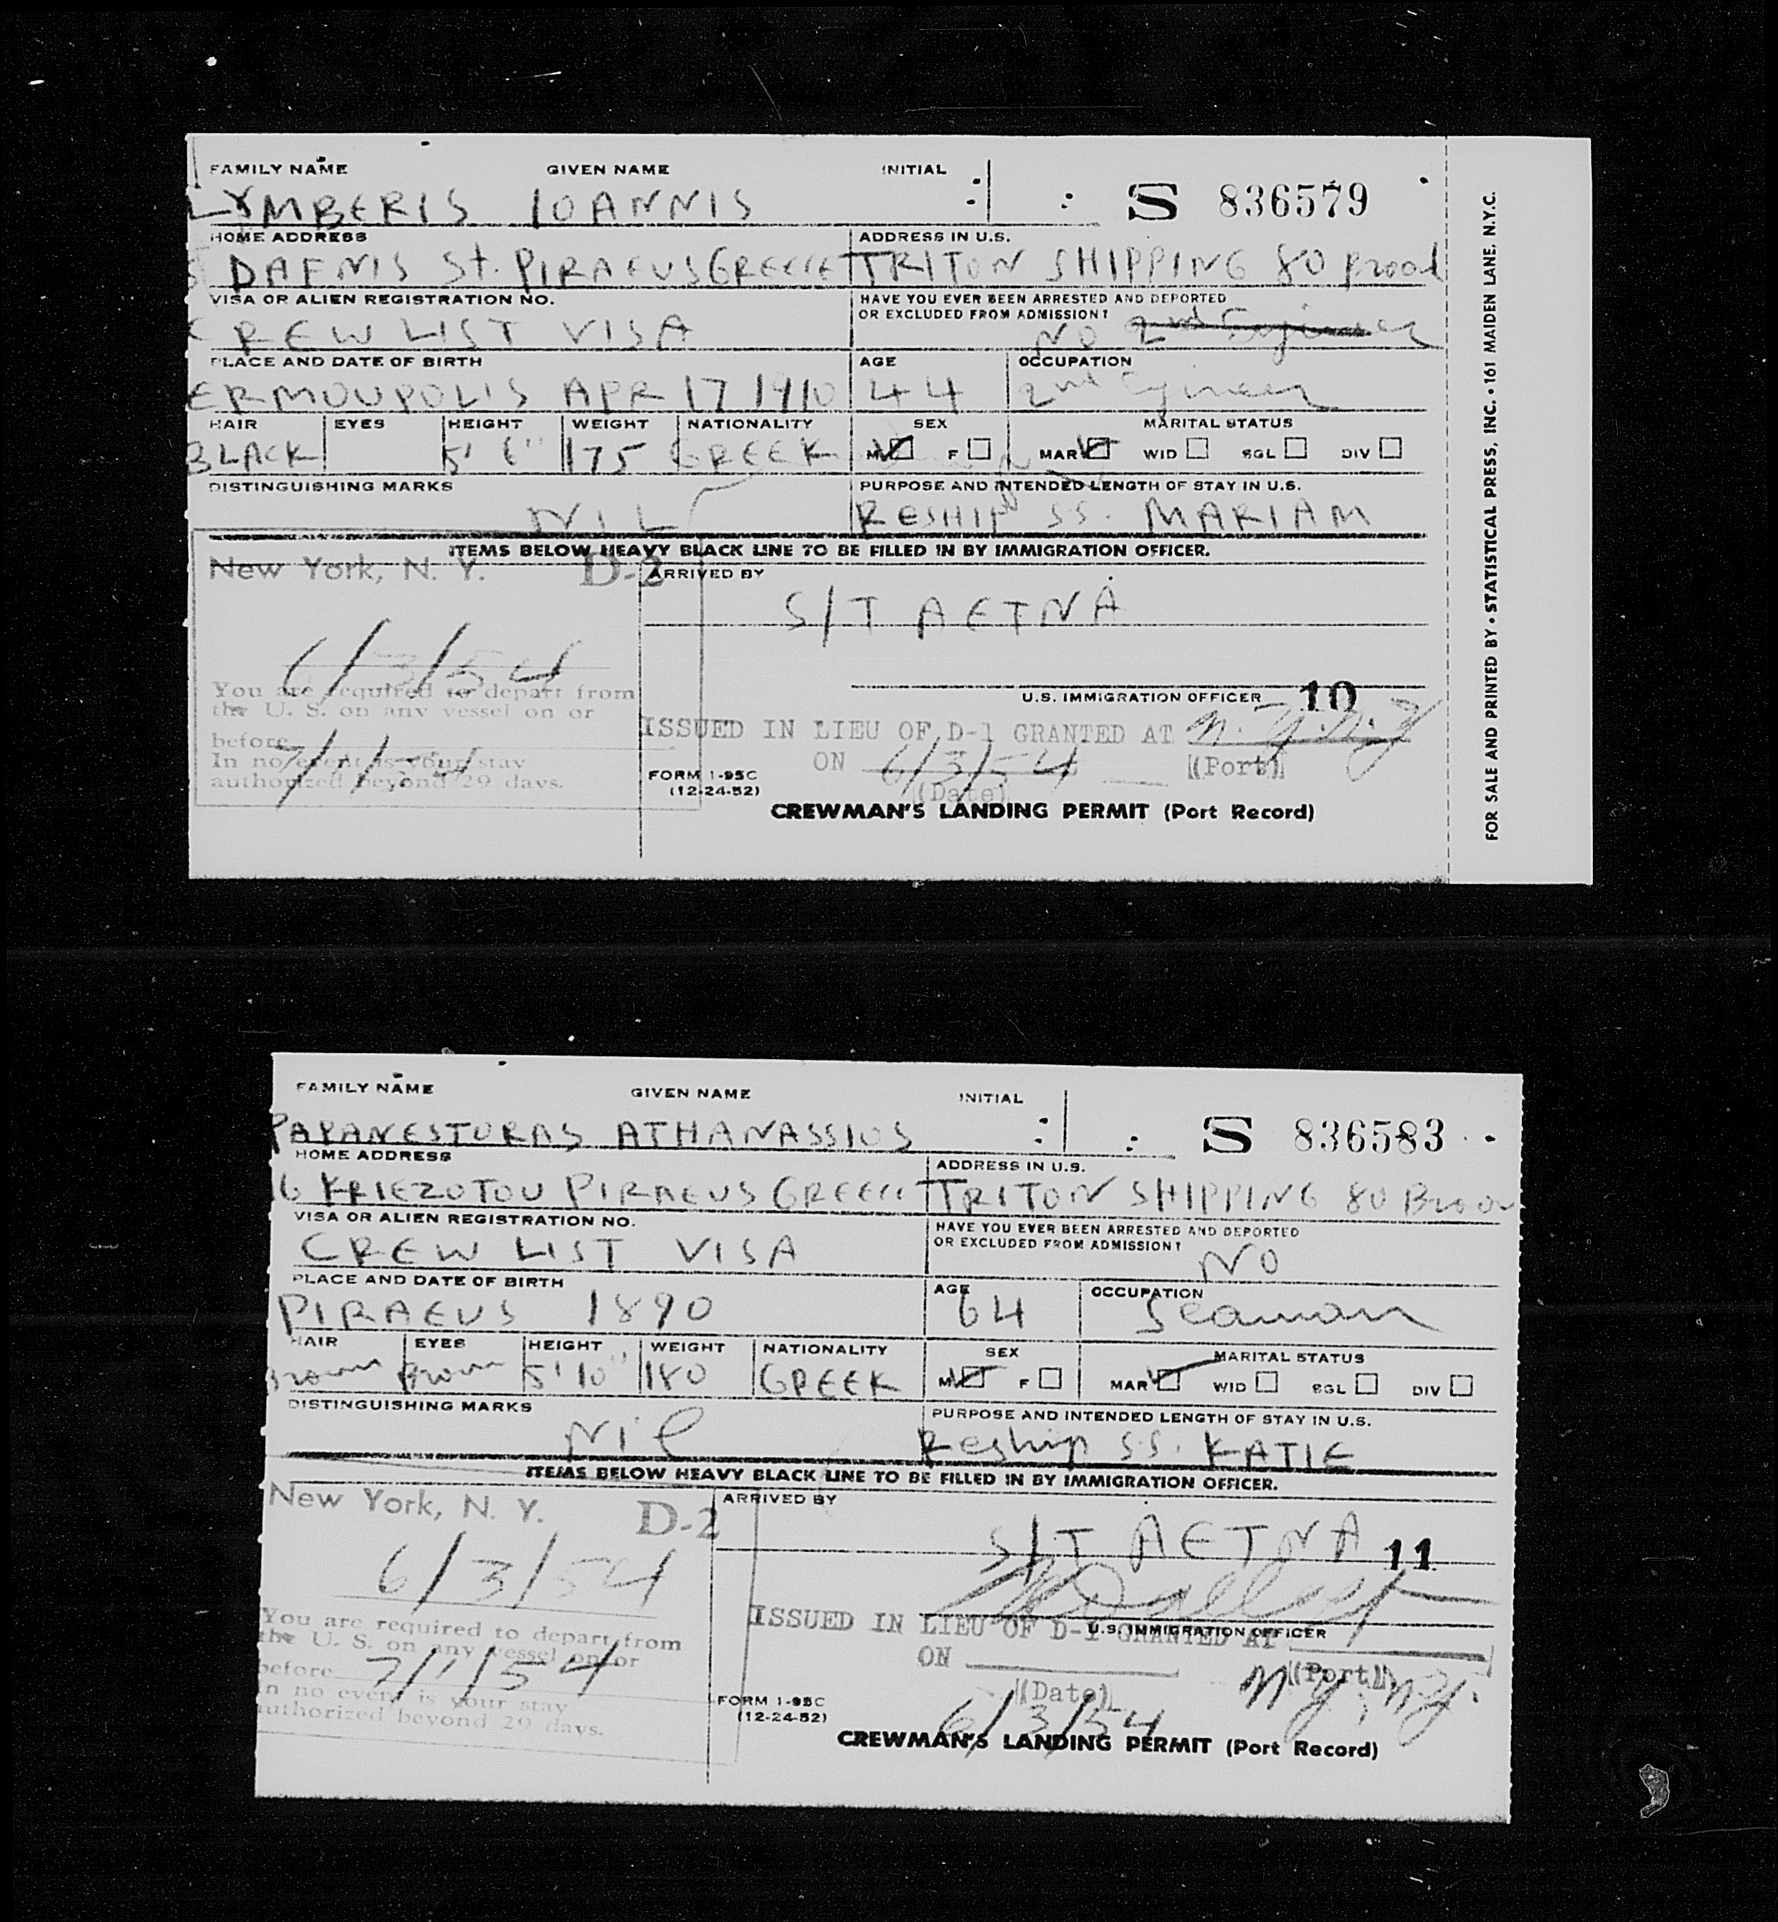 FAMILY NAME GIVEN NAME INITIAL
LYMBERIS IOANNIS S 836579
HOME ADDRESS ADDRESS IN U.S.
DAFNIS St. PIRAEUS GREECE TRITON SHIPPING 80 Broad
VISA OR ALIEN REGISTRATION NO. HAVE YOU EVER BEEN ARRESTED AND DEPORTED
OR EXCLUDED FROM ADMISSION?
CREW LIST VISA NO 2nd Engineer
PLACE AND DATE OF BIRTH AGE OCCUPATION
ERMOUPOLIS APR 17 1910 44 2nd Engineer
HAIR EYES HEIGHT WEIGHT NATIONALITY SEX MARITAL STATUS
BLACK 5' 6" 175 GREEK M F MAR WID SGL DIV
DISTINGUISHING MARKS PURPOSE AND INTENDED LENGTH OF STAY IN U.S.
NIL RESHIP SS. MARIAM
ITEMS BELOW HEAVY BLACK LINE TO BE FILLED IN BY IMMIGRATION OFFICER.
New York, N. Y. D-2 ARRIVED BY
S/T AETNA
6/3/54
You are required to depart from
the U. S. on any vessel on or
before 7/1/54
In no event is your stay
authorized beyond 29 days.
U.S. IMMIGRATION OFFICER 10
ISSUED IN LIEU OF D-1 GRANTED AT N.Y. N.Y
ON 6/3/54 (Port)
(Date)
FORM I-95C
(12-24-52)
CREWMAN'S LANDING PERMIT (Port Record)
FOR SALE AND PRINTED BY • STATISTICAL PRESS, INC. • 161 MAIDEN LANE, N.Y.C.
FAMILY NAME GIVEN NAME INITIAL
PAPANESTORAS ATHANASSIOS S 836583
HOME ADDRESS ADDRESS IN U.S.
16 KRIEZOTOU PIRAEUS GREECE TRITON SHIPPING 80 Broad
VISA OR ALIEN REGISTRATION NO. HAVE YOU EVER BEEN ARRESTED AND DEPORTED
OR EXCLUDED FROM ADMISSION?
CREW LIST VISA NO
PLACE AND DATE OF BIRTH AGE OCCUPATION
PIRAEUS 1890 64 Seaman
HAIR EYES HEIGHT WEIGHT NATIONALITY SEX MARITAL STATUS
Brown Brown 5' 10" 180 GREEK M F MAR WID SGL DIV
DISTINGUISHING MARKS PURPOSE AND INTENDED LENGTH OF STAY IN U.S.
Nil Reship S.S. KATIE
ITEMS BELOW HEAVY BLACK LINE TO BE FILLED IN BY IMMIGRATION OFFICER.
New York, N. Y. D-2 ARRIVED BY
S/T AETNA 11
6/3/54
You are required to depart from
the U. S. on any vessel on or
before 7/1/54
In no event is your stay
authorized beyond 29 days.
U.S. IMMIGRATION OFFICER
ISSUED IN LIEU OF D-1 GRANTED AT
ON (Port) N.Y. N.Y.
(Date)
6/3/54
FORM I-95C
(12-24-52)
CREWMAN'S LANDING PERMIT (Port Record)